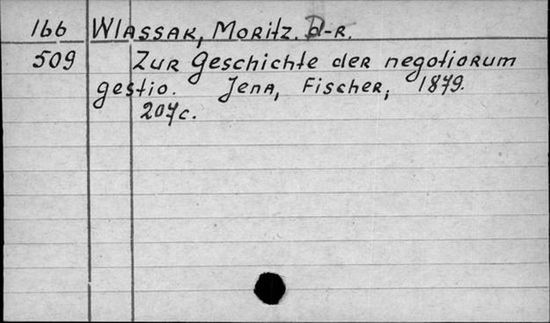 166 WLASSAK, MORitz. D-R.
509 ZUR Geschichte der negotiorum
gestio. Jena, Fischer, 1879.
207c.